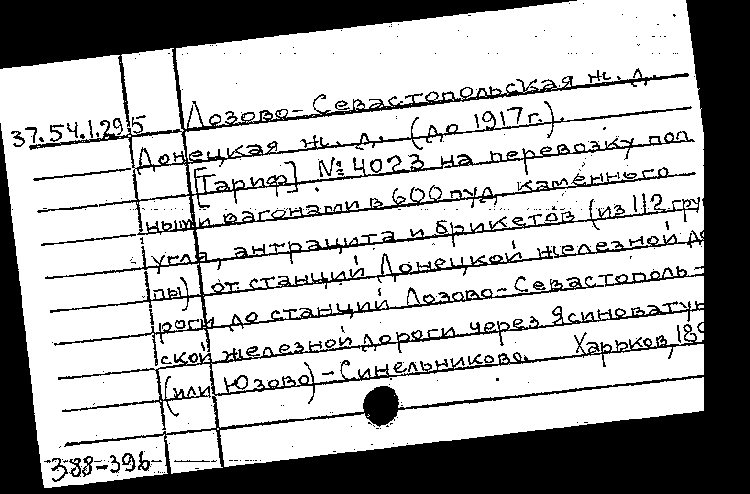 Лозово-Севастопольская ж. д.
37.54.1.295
Донецкая ж. д. (до 1917 г.).
[Тариф] № 4023 на перевозку пол
ными вагонами в 600 пуд. каменного
угля, антрацита и брикетов (из 112 груп
пы) от станций Донецкой железной до
роги до станций Лозово-Севастополь-
ской железной дороги через Ясиноватую
(или Юзово)-Синельниково. Харьков, 189
388-396